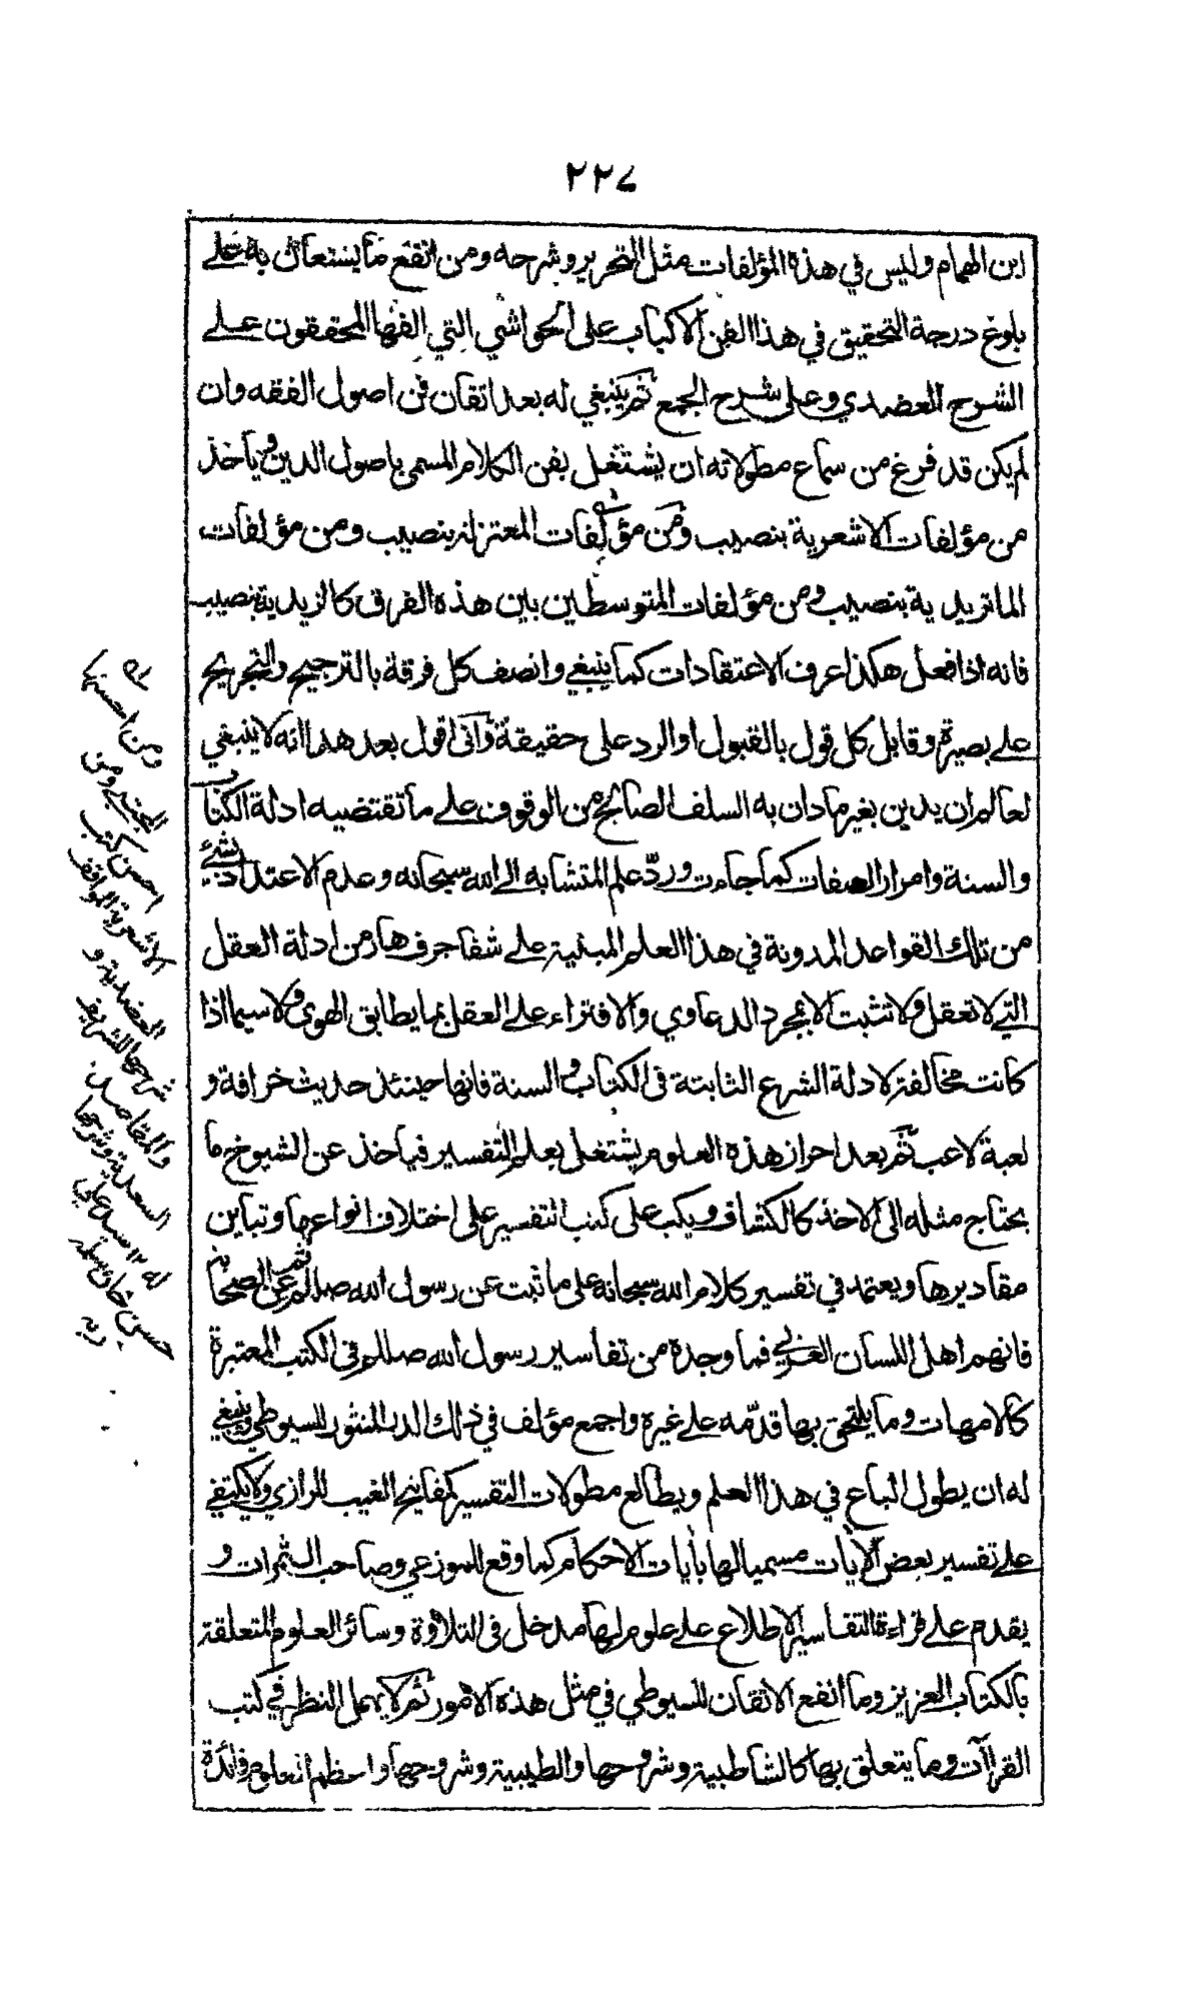 ٢٢٧
ابن الهمام وليس في هذه المؤلفات مثل التحرير وشرحه ومن انفع ما يستعان به على
بلوغ درجة التحقيق في هذا الفن الاكباب على الحواشي التي الفها المحققون على
الشرح العضدي وعلى شرح الجمع ثم ينبغي له بعد اتقان فن اصول الفقه وان
لم يكن قد فرغ من سماع مطولاته ان يشتغل بفن الكلام المسمى باصول الدين ويأخذ
من مؤلفات الاشعرية بنصيب ومن مؤلفات المعتزلة بنصيب ومن مؤلفات
الماتريدية بنصيب ومن مؤلفات المتوسطين بين هذه الفرق كالزيدية بنصيب
فانه اذا فعل هكذا عرف الاعتقادات كما ينبغي وانصف كل فرقة بالترجيح والتجريح
على بصيرة وقابل كل قول بالقبول او الرد على حقيقة وانى اقول بعد هذا انه لا ينبغي
لعالم ان يدين بغير ما دان به السلف الصالح من الوقوف على ما تقتضيه ادلة الكتاب
والسنة وامرار الصفات كما جاءت وردّ علم المتشابه الى الله سبحانه وعدم الاعتداد بشئ
من تلك القواعد المدونة في هذا العلم المبنية على شفا جرف هار من ادلة العقل
التي لا تعقل ولا تثبت الا بمجرد الدعاوي والافتراء على العقل بما يطابق الهوى ولا سيما اذا
كانت مخالفة لادلة الشرع الثابتة في الكتاب والسنة فانها حينئذ حديث خرافة و
لعبة لاعب ثم بعد احراز هذه العلوم يشتغل بعلم التفسير فيأخذ عن الشيوخ ما
يحتاج مثله الى الاخذ كالكشاف ويكب على كتب التفسير على اختلاف انواعها وتباين
مقاديرها ويعتمد في تفسير كلام الله سبحانه على ما ثبت عن رسول الله صللم ثم عن الصحابة
فانهم اهل اللسان العربي فما وجده من تفاسير رسول الله صللم في الكتب المعتبرة
كالامهات وما يلتحق بها قدّمه على غيره واجمع مؤلف في ذلك الدر المنثور للسيوطي وينبغي
له ان يطول الباع في هذا العلم ويطالع مطولات التفسير كمفاتيح الغيب للرازي ولا يكتفي
على تفسير بعض الآيات مسميا لها بآيات الاحكام كما وقع للموزعي وصاحب الثمرات و
يقدم على قراءة التفاسير الاطلاع على علوم لها مدخل في التلاوة وسائر العلوم المتعلقة
بالكتاب العزيز وما انفع الاتقان للسيوطي في مثل هذه الامور ثم لا يهمل النظر في كتب
القراآت وما يتعلق بها كالشاطبية وشروحها والطيبية وشروحها واعظم العلوم فائدة
ومن احسنها
المجتبى ومن
احسن كتب
الاشعرية المواقف
العضدية و
شرحها للشريف
والمقاصد
السعدية وشرحها
له ١٢ سيد علي
حسن خان سلمه
ربه